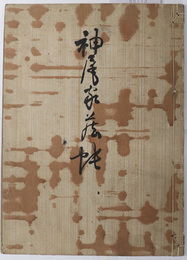 神尾家蔵帳